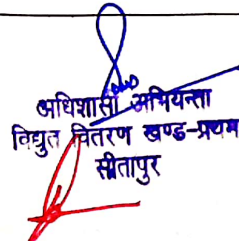 अधिशासी अभियन्ता
विद्युत वितरण खण्ड-प्रथम
सीतापुर